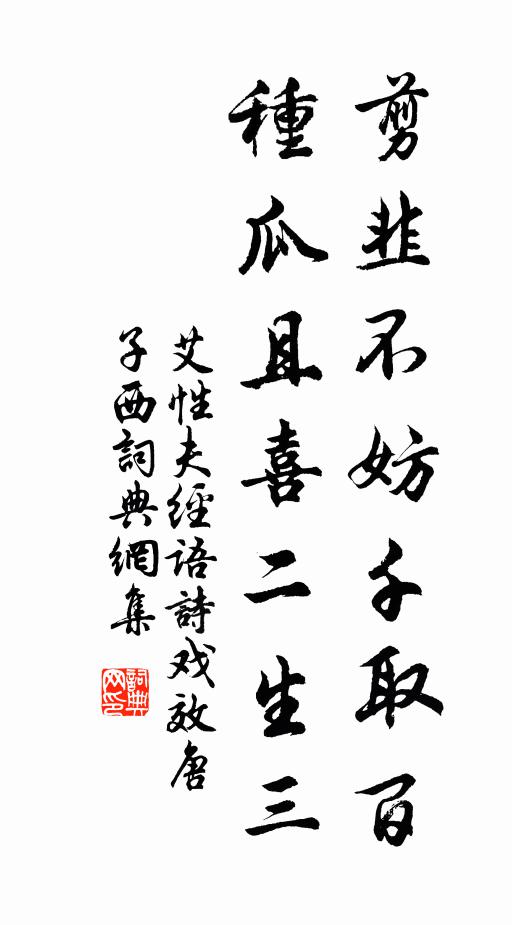 剪韭不妨千取百
種瓜且喜二生三
艾性夫經語詩戏效唐
子西詞典網集
詞典
网印